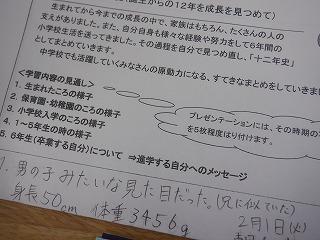 生からの12年を成長を見つめて)
生まれてから今までの成長の中で、家族はもちろん、たくさんの人の
支えがありました。また、自分自身も様々な経験や努力をして6年間の
小学校生活を送ってきました。その過程を自分で見つめ直し、「十二年史」
としてまとめていきます。
中学校でも活躍していくみなさんの原動力になる、すてきなまとめをしていきま
<学習内容の見通し>
1. 生まれたころの様子
2. 保育園・幼稚園のころの様子
3. 小学校入学のころの様子
4. 1~5年生の時の様子
5. 6年生(卒業する自分)について ⇒進学する自分へのメッセージ
プレゼンテーションには、その時期の
を5枚程度はり付けます。
1. 男の子みたいな見た目だった。(兄に似ていた)
身長50cm 体重3456g
2月1日(火)